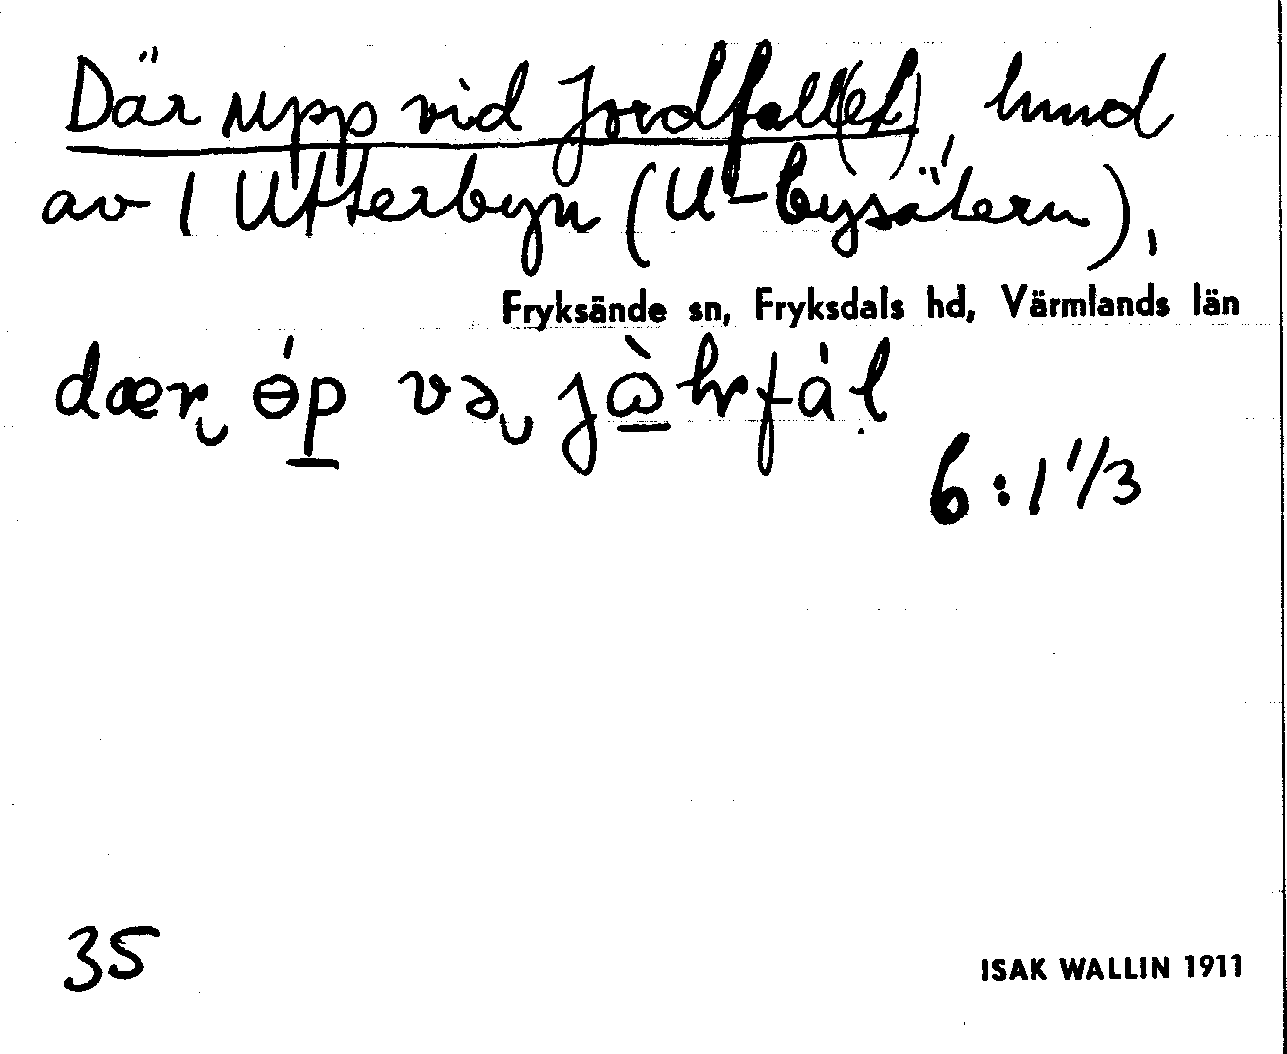 Där upp vid Jordfall(et), lund
av 1 Utterbyn (U-bysätern),
Fryksände sn, Fryksdals hd, Värmlands län
dær ɵ́p və jɷ̀ɽfál
6:1 1/3
35
ISAK WALLIN 1911